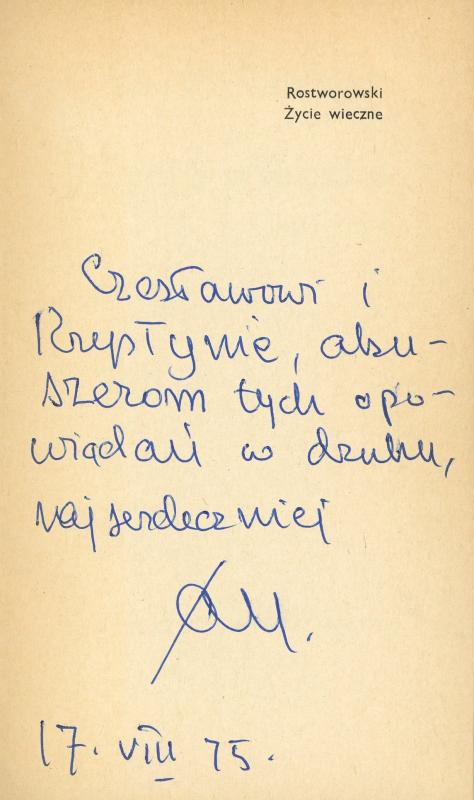 Rostworowski
Życie wieczne
Czesławowi i
Krystynie, aku-
szerom tych opo-
wiadań w druku,
najserdeczniej
M.
17. VIII 75.